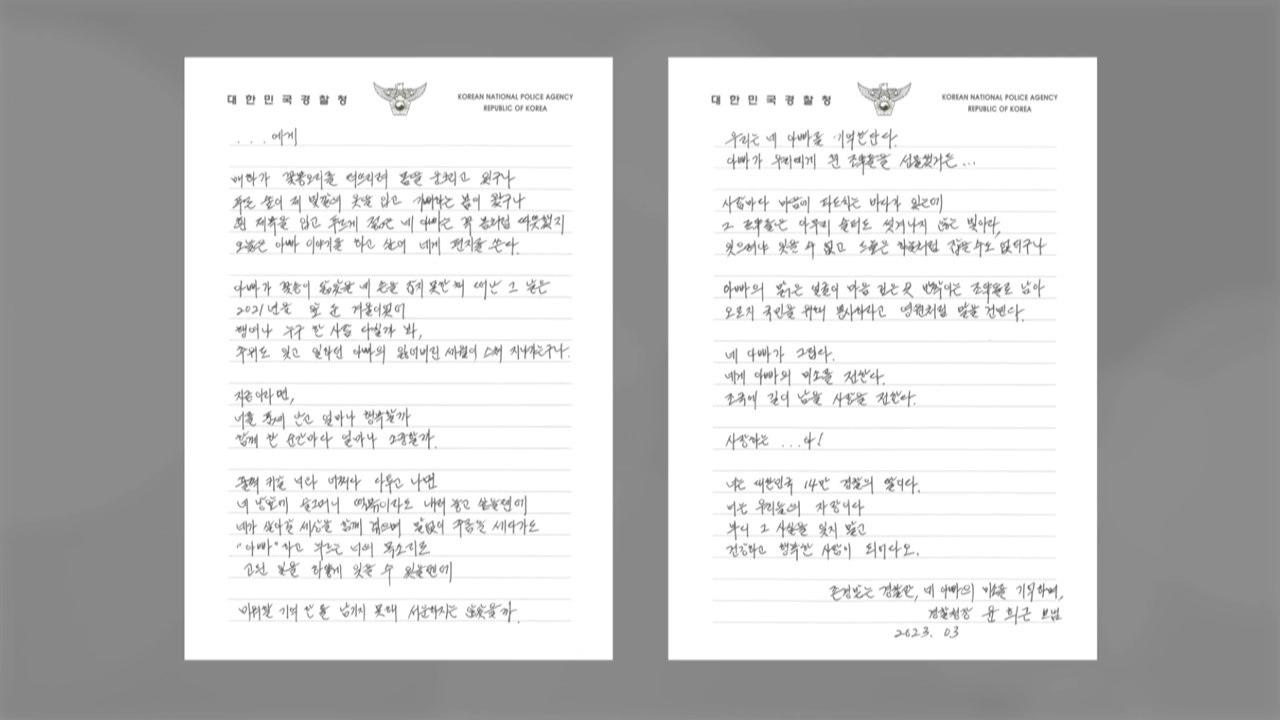 대한민국경찰청
KOREAN NATIONAL POLICE AGENCY
REPUBLIC OF KOREA
. . . 에게
매화가 꽃봉오리를 터뜨리려 몸을 웅크리고 있구나
푸른 솔이 제 빛깔의 옷을 입고 기뻐하는 봄이 왔구나
흰 제복을 입고 푸르게 젊은 네 아빠는 꼭 봄처럼 따뜻했지
오늘은 아빠 이야기를 하고 싶어 네게 편지를 쓴다.
아빠가 꽃잎이 네 손을 잡지 못한 채 떠난 그 날은
2021년을 앞 둔 겨울이었어
행여나 누구 한 사람 다칠까 봐,
추위도 잊고 일하던 아빠의 잃어버린 세월이 스쳐 지나가는구나.
지금이라면,
너를 품에 안고 얼마나 행복할까
함께 한 순간마다 얼마나 소중할까.
훌쩍 키운 너와 어쩌다 다투고 나면
네 방문에 슬그머니 떡볶이라도 내려 놓고 싶을텐데
네가 살아갈 세상을 함께 겪으며 말없이 주름을 세다가도
“아빠”하고 부르는 너의 목소리로
고된 날을 하얗게 잊을 수 있을텐데
미워할 기억 한 줌 남기지 못해 서운하지는 않을까.
대한민국경찰청
KOREAN NATIONAL POLICE AGENCY
REPUBLIC OF KOREA
우리는 네 아빠를 기억한단다.
아빠가 우리에게 흰 조약돌을 선물했거든...
사람마다 마음에 파도치는 바다가 있는데
그 조약돌은 아무리 쓸려도 씻겨나지 않는 빛이라,
잊으려야 잊을 수 없고 수도 없더구나
아빠의 맑은 얼굴이 마음 깊은 곳 반짝이는 조약돌로 남아
오로지 국민을 위해 봉사하라고 영원처럼 말을 건넨다.
네 아빠가 그립다.
네게 아빠의 미소를 전한다.
조국에 길이 남을 사랑을 전한다.
사랑하는 . . . 아!
너는 대한민국 14만 경찰의 딸이다.
너는 우리들의 자랑이다
부디 그 사실을 잊지 말고
건강하고 행복한 사람이 되어다오.
존경받는 경찰관, 네 아빠의 미소를 기억하며,
경찰청장 윤 희근 보냄
2023. 03